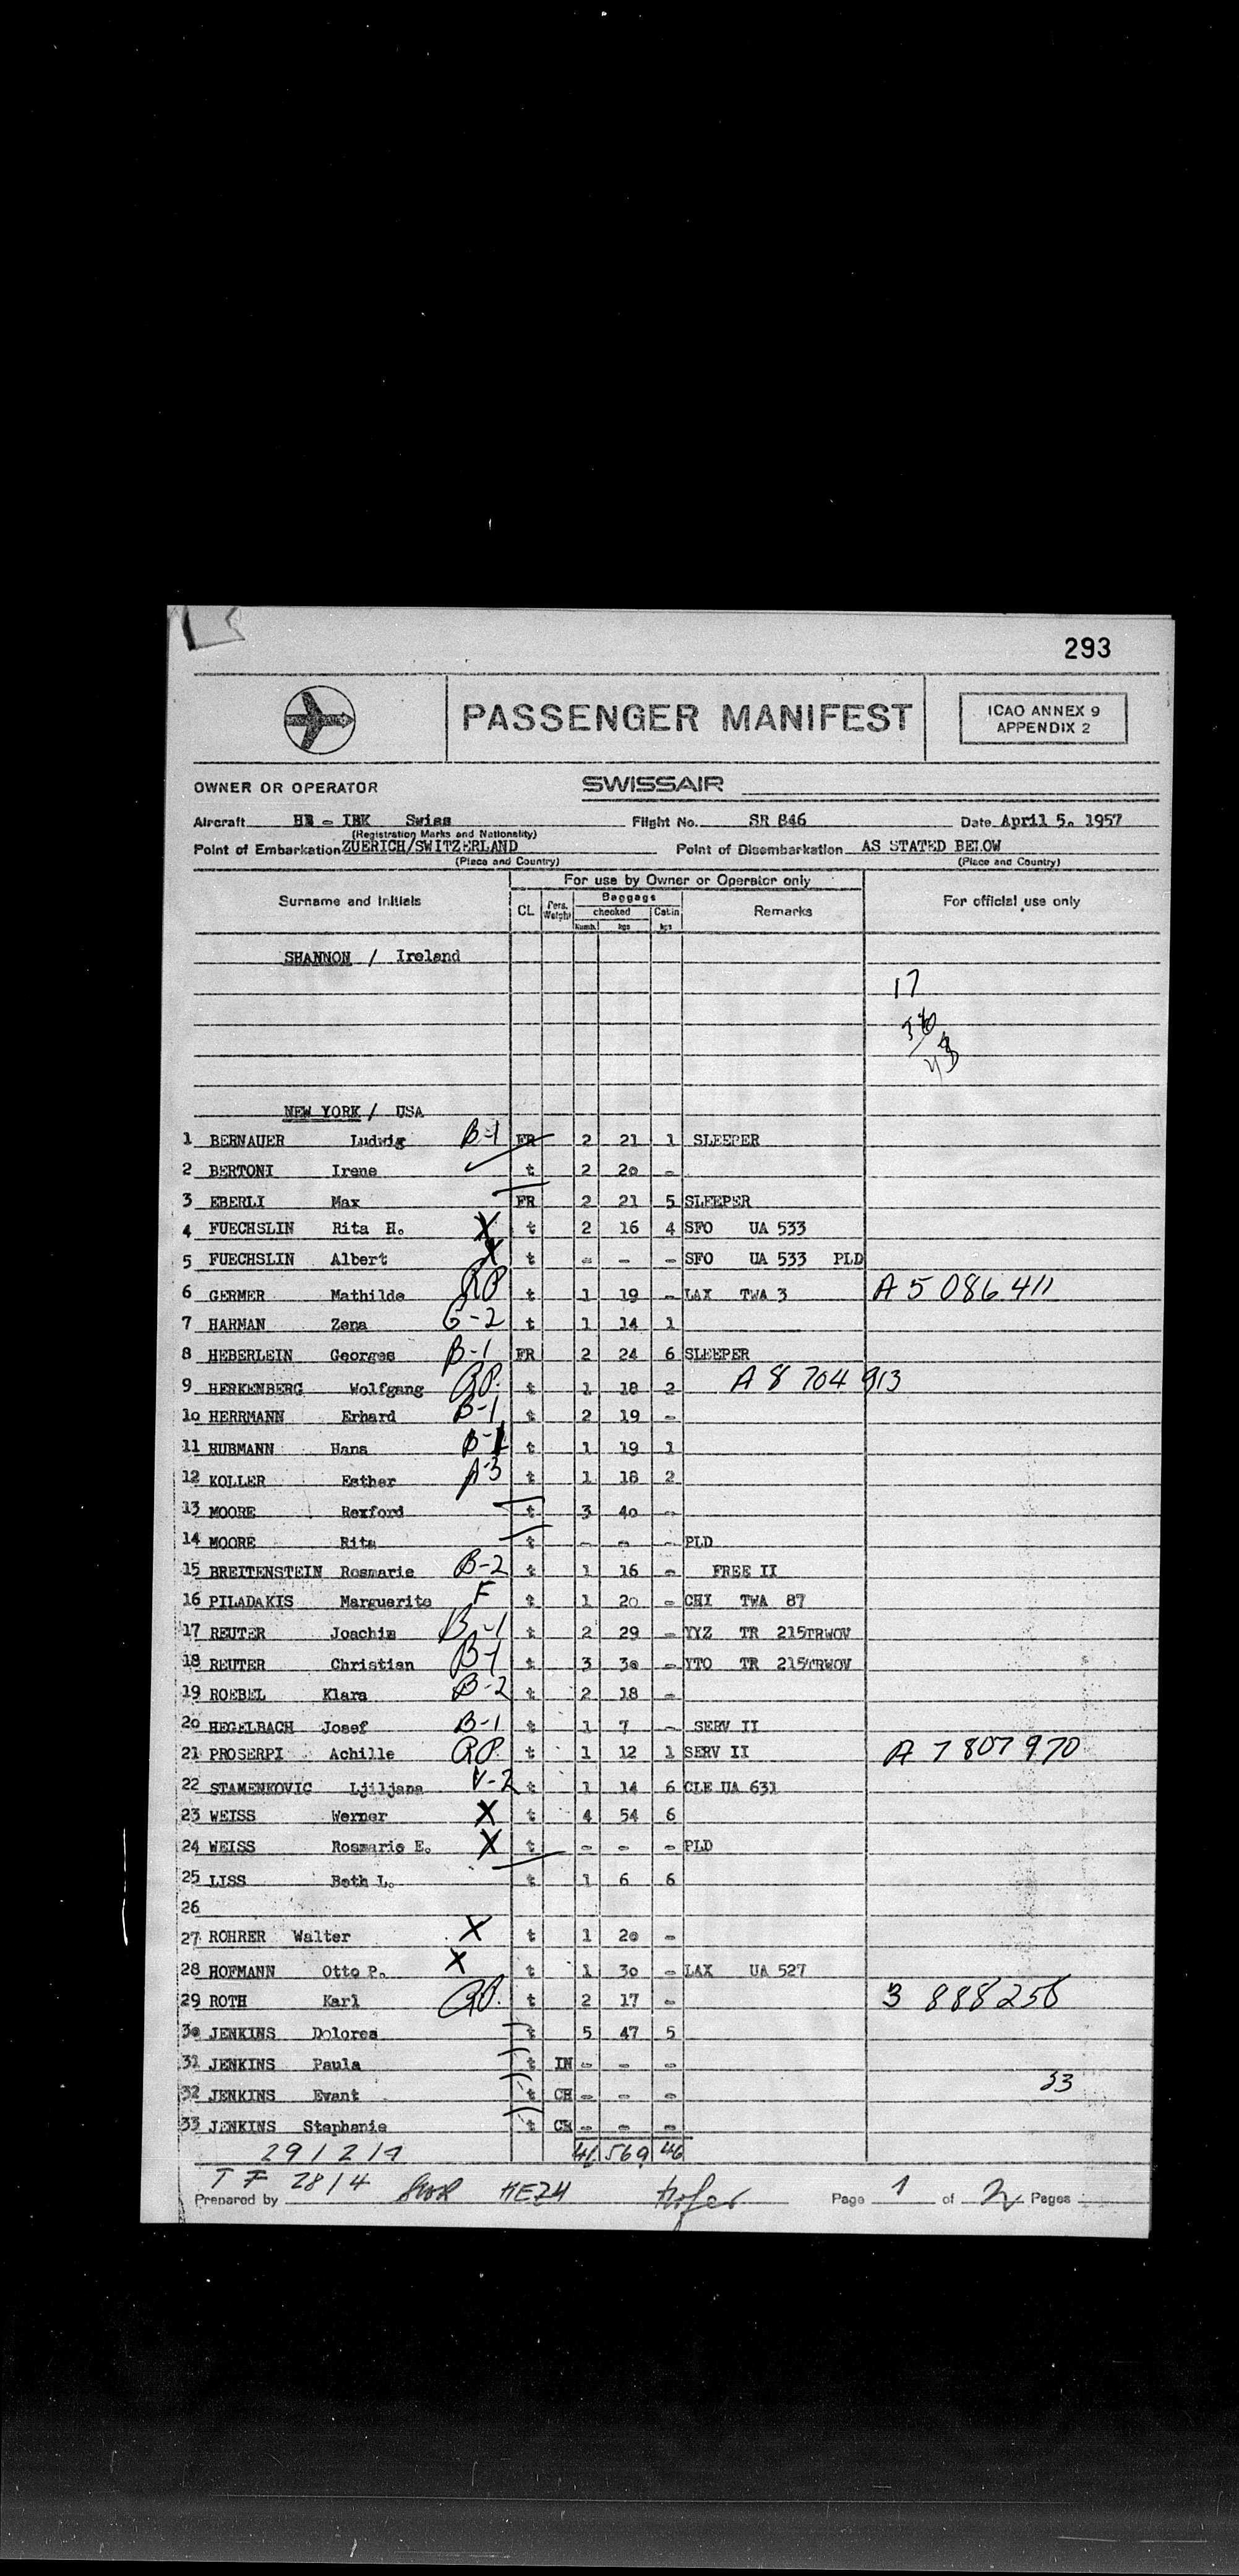 293
PASSENGER MANIFEST
ICAO ANNEX 9
APPENDIX 2
OWNER OR OPERATOR SWISSAIR
Aircraft HB - IBK Swiss Flight No. SR 846 Date April 5. 1957
(Registration Marks and Nationality)
Point of Embarkation ZUERICH/SWITZERLAND Point of Disembarkation AS STATED BELOW
(Place and Country) (Place and Country)
For use by Owner or Operator only
Surname and Initials CL Pers. Weight Baggage checked Numb. kgs Cabin kgs Remarks For official use only
SHANNON / Ireland
17
NEW YORK / USA
1 BERNAUER Ludwig B-1 FR 2 21 1 SLEEPER
2 BERTONI Irene t 2 20 -
3 EBERLI Max FR 2 21 5 SLEEPER
4 FUECHSLIN Rita H. X t 2 16 4 SFO UA 533
5 FUECHSLIN Albert X t - - - SFO UA 533 PLD
6 GERMER Mathilde RP t 1 19 - LAX TWA 3 A 5 086 411
7 HARMAN Zena G-2 t 1 14 1
8 HEBERLEIN Georges B-1 FR 2 24 6 SLEEPER
9 HERKENBERG Wolfgang RP. t 1 18 2 A 8 704 913
10 HERRMANN Erhard B-1 t 2 19 -
11 HUBMANN Hans B-1 t 1 19 1
12 KOLLER Esther A-3 t 1 18 2
13 MOORE Rexford t 3 40 -
14 MOORE Rita t - - - PLD
15 BREITENSTEIN Rosmarie B-2 t 1 16 - FREE II
16 PILADAKIS Marguerite F t 1 20 - CHI TWA 87
17 REUTER Joachim B-1 t 2 29 - YYZ TR 215TRWOV
18 REUTER Christian B-1 t 3 30 - YTO TR 215TRWOV
19 ROEBEL Klara B-2 t 2 18 -
20 HEGELBACH Josef B-1 t 1 7 - SERV II
21 PROSERPI Achille RP. t 1 12 1 SERV II A 7 807 970
22 STAMENKOVIC Ljiljana V-2 t 1 14 6 CLE UA 631
23 WEISS Werner X t 4 54 6
24 WEISS Rosmarie E. X t - - - PLD
25 LISS Beth L. t 1 6 6
26
27 ROHRER Walter X t 1 20 -
28 HOFMANN Otto P. X t 1 30 - LAX UA 527
29 ROTH Karl RP. t 2 17 - 3 888256
30 JENKINS Dolores t 5 47 5
31 JENKINS Paula t IN - - -
32 JENKINS Ewant t CH - - - 33
33 JENKINS Stephanie t CH - - -
29/2/1 46 569 46
T F 28/4
Prepared by SWR HEZH Hofer Page 1 of 2 Pages